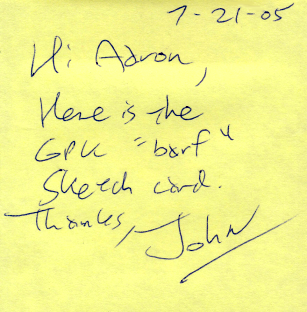 7-21-05
Hi Aaron,
Here is the
GPK "barf"
Sketch card.
Thanks,
John